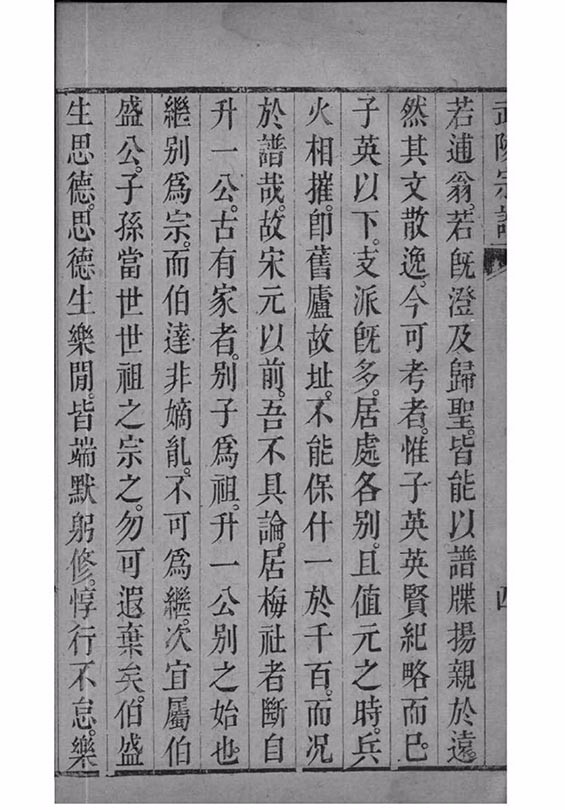 武陵宗譜
四
若逋翁。若旣澄及歸聖。皆能以譜牒揚親於遠。
然其文散逸。今可考者。惟子英英賢紀略而已。
子英以下。支派旣多。居處各别。且值元之時。兵
火相摧。卽舊廬故址。不能保什一於千百。而况
於譜哉。故宋元以前。吾不具論。居梅社者斷自
升一公。古有家者。别子爲祖。升一公别之始也。
繼别爲宗。而伯達非嫡亂。不可爲繼。次宜屬伯
盛公。子孫當世世祖之宗之。勿可遐棄矣。伯盛
生思德。思德生樂閒。皆端默躬修。惇行不怠。樂